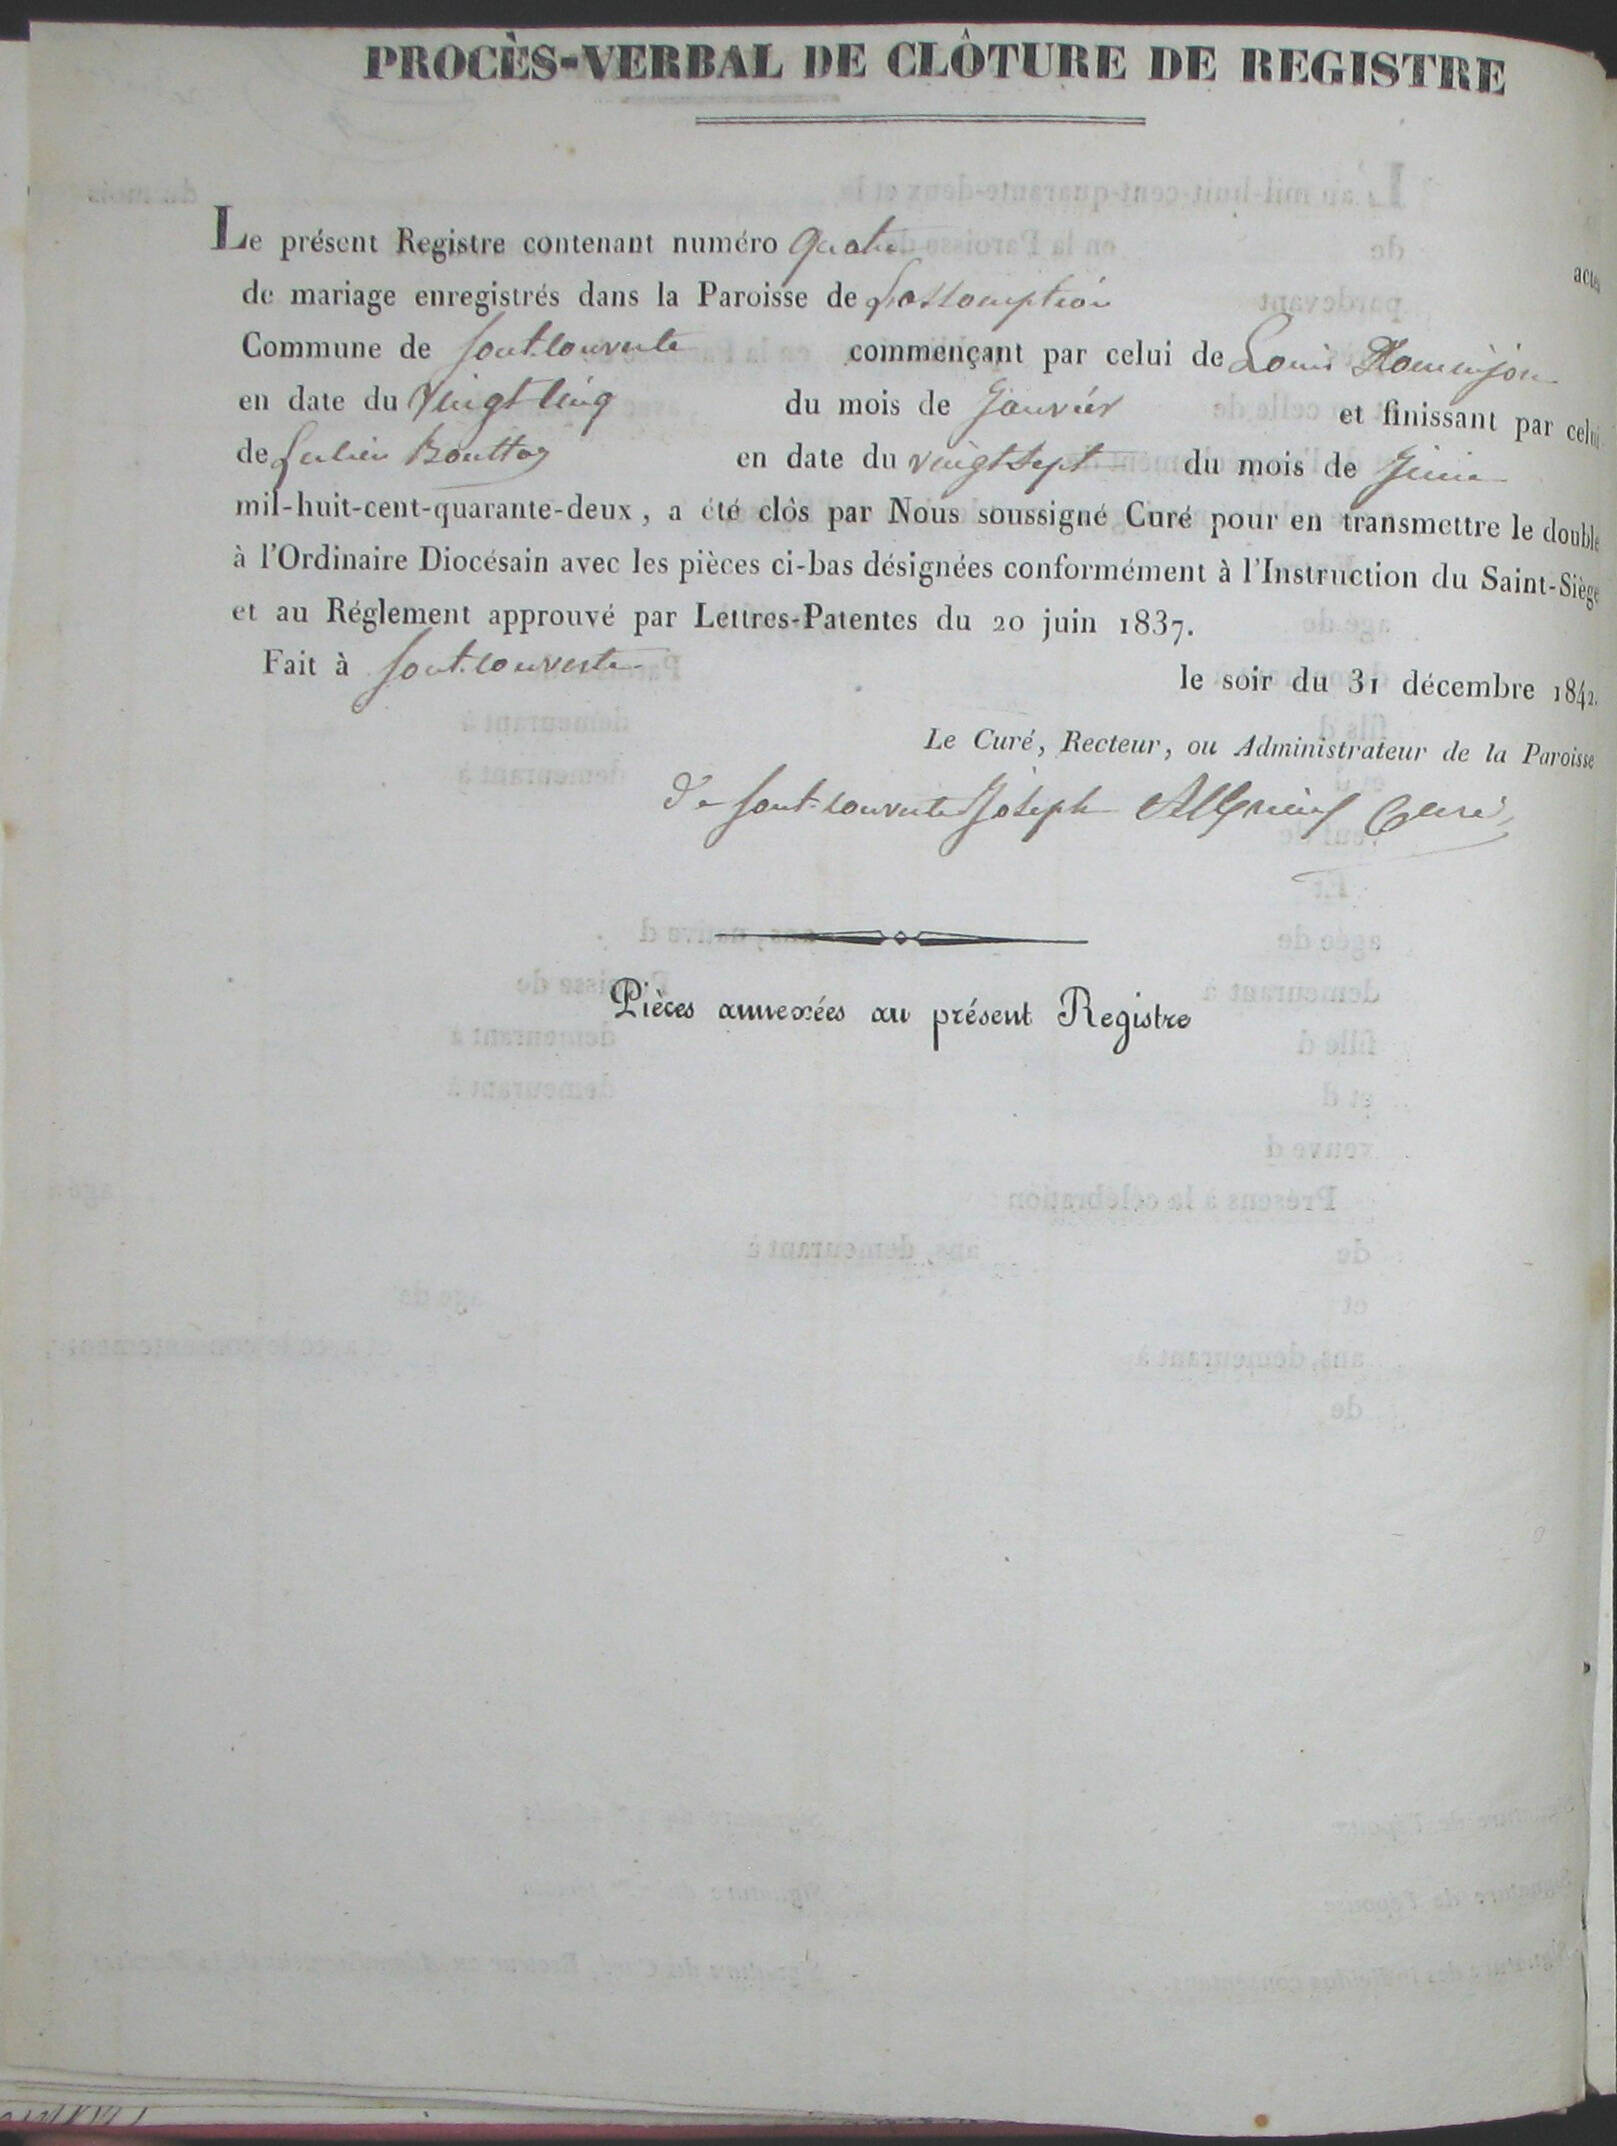 PROCÈS-VERBAL DE CLÔTURE DE REGISTRE
Le présent Registre contenant numéro quatre actes
de mariage enregistrés dans la Paroisse de Lassomption
Commune de fontcouverte commençant par celui de Louis
en date du vingt cinq du mois de Janvier et finissant par celui
de Bouttaz en date du vingt sept du mois de Juin
mil-huit-cent-quarante-deux, a été clòs par Nous soussigné Curé pour en transmettre le double
à l'Ordinaire Diocésain avec les pièces ci-bas désignées conformément à l'Instruction du Saint-Siège
et au Réglement approuvé par Lettres-Patentes du 20 juin 1837.
Fait à fontcouverte le soir du 31 décembre 1842.
Le Curé, Recteur, ou Administrateur de la Paroisse
de fontcouverte Joseph Curé
Pièces annexées au présent Registre